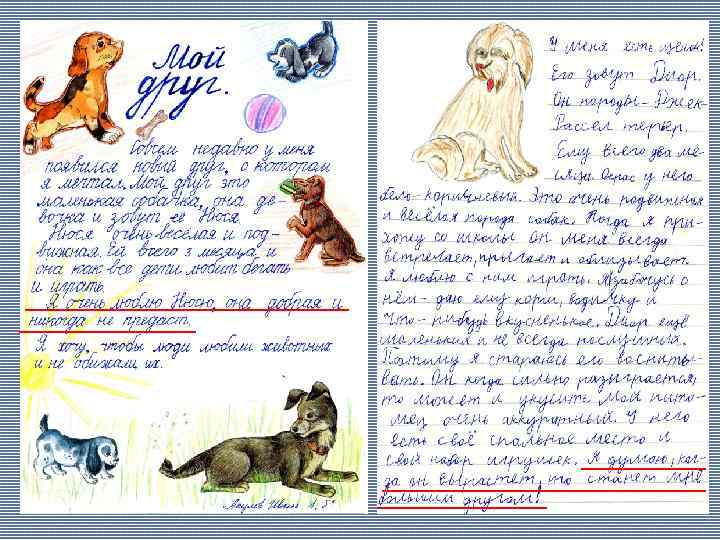 Мой
друг.
Совсем недавно у меня
появился новый друг, о котором
я мечтал. Мой друг это
маленькая собачка, она де-
вочка и зовут её Нюся.
Нюся очень весёлая и под-
вижная. Ей всего 3 месяца и
она как все дети любит бегать
и играть.
Я очень люблю Нюсю, она добрая и
никогда не предаст.
Я хочу, чтобы люди любили животных
и не обижали их.
У меня есть щенок!
Его зовут Диор.
Он породы - Джек-
Рассел терьер.
Ему всего два ме-
сяца окрас у него
бело-коричневый. Это очень подвижная
и весёлая порода собак. Когда я при-
хожу со школы он меня всегда
встречает, прыгает и облизывает.
Я люблю с ним играть. Я забочусь о
нём - даю ему корм, водичку и
что-нибудь вкусненькое. Диор ещё
маленький и не всегда послушный.
Поэтому я стараюсь его воспиты-
вать. Он когда сильно разыграется,
то может и укусить. Мой пито-
мец очень аккуратный. У него
есть своё спальное место и
свой набор игрушек. Я думаю, ког-
да он вырастет, то станет мне
большим другом!